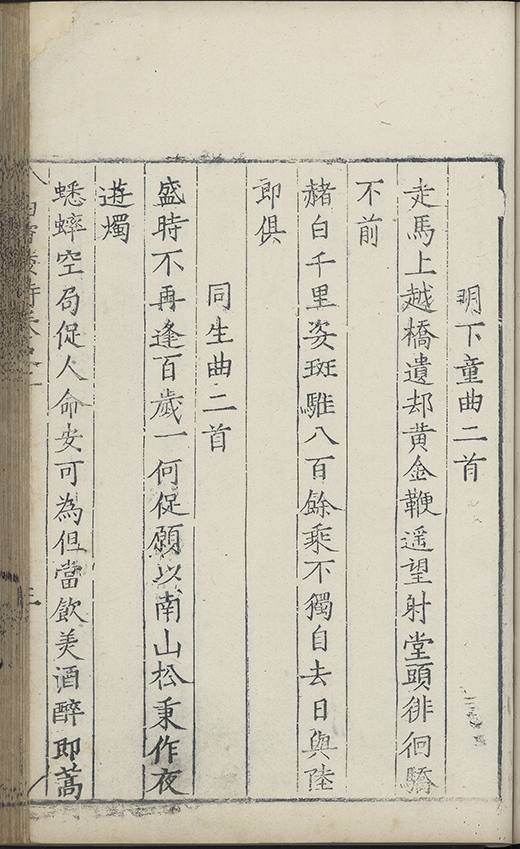 明下童曲二首
走馬上越橋遺却黃金鞭遥望射堂頭徘徊驕
不前
赭白千里姿斑騅八百餘乘不獨自去日與陸
郎俱
同生曲二首
盛時不再逢百歲一何促願以南山松秉作夜
遊燭
蟋蟀空局促人命安可為但當飲美酒醉卽蒿